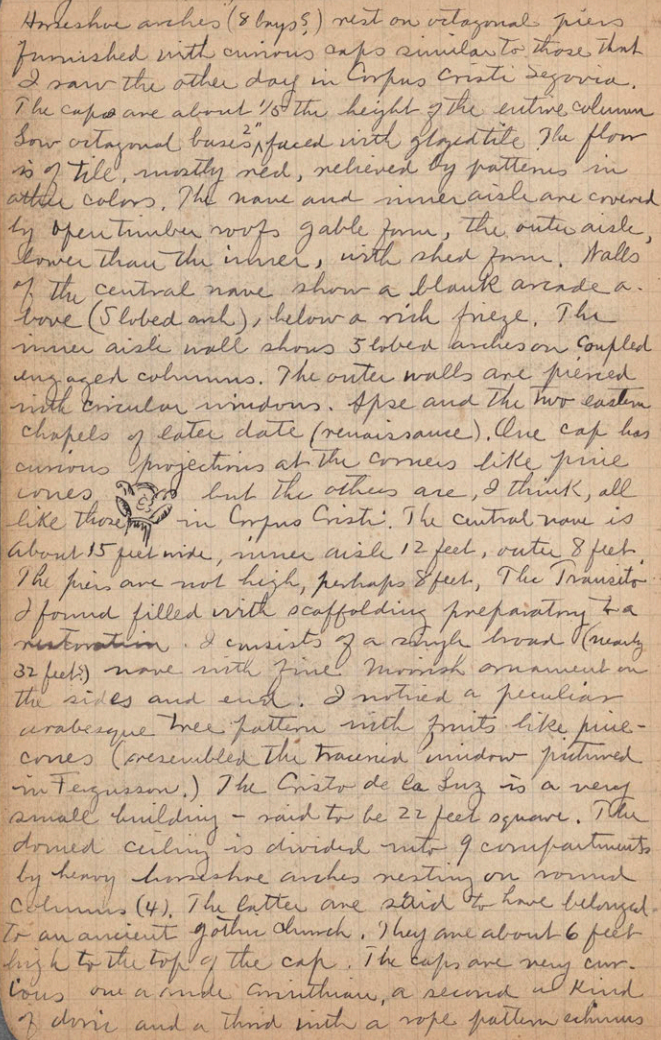 Horseshoe arches (8 bays?) rest on octagonal piers
furnished with curious caps similar to those that
I saw the other day in Corpus Cristi Segovia.
The caps are about 1/5 the height of the entire column
Low octagonal bases, 2", faced with glazed tile The floor
is of tile, mostly red, relieved by patterns in
other colors. The nave and inner aisle are covered
by open timber roofs gable form, the outer aisle,
lower than the inner, with shed form. Walls
of the central nave show a blank arcade a-
bove (5 lobed arch), below a rich frieze. The
inner aisle wall shows 5 lobed arches on coupled
engaged columns. The outer walls are pierced
with circular windows. Apse and the two eastern
chapels of later date (renaissance). One cap has
curious projections at the corners like pine
cones, but the others are, I think, all
like those in Corpus Cristi. The central nave is
about 15 feet wide, inner aisle 12 feet, outer 8 feet.
The piers are not high, perhaps 8 feet, The Transito
I found filled with scaffolding preparatory to a
restoration. I consists of a single broad (nearly
32 feet?) nave with fine Moorish ornament on
the sides and end. I noticed a peculiar
arabesque tree pattern with fruits like pine-
cones (resembled the traceried window pictured
in Fergusson.) The Cristo de la Luz is a very
small building - said to be 22 feet square. The
domed ceiling is divided into 9 compartments
by heavy horseshoe arches resting on round
columns (4). The latter are said to have belonged
to an ancient gothic church. They are about 6 feet
high to the top of the cap. The caps are very cur-
ious one a rude Corinthian, a second a kind
of doric and a third with a rope pattern echinus